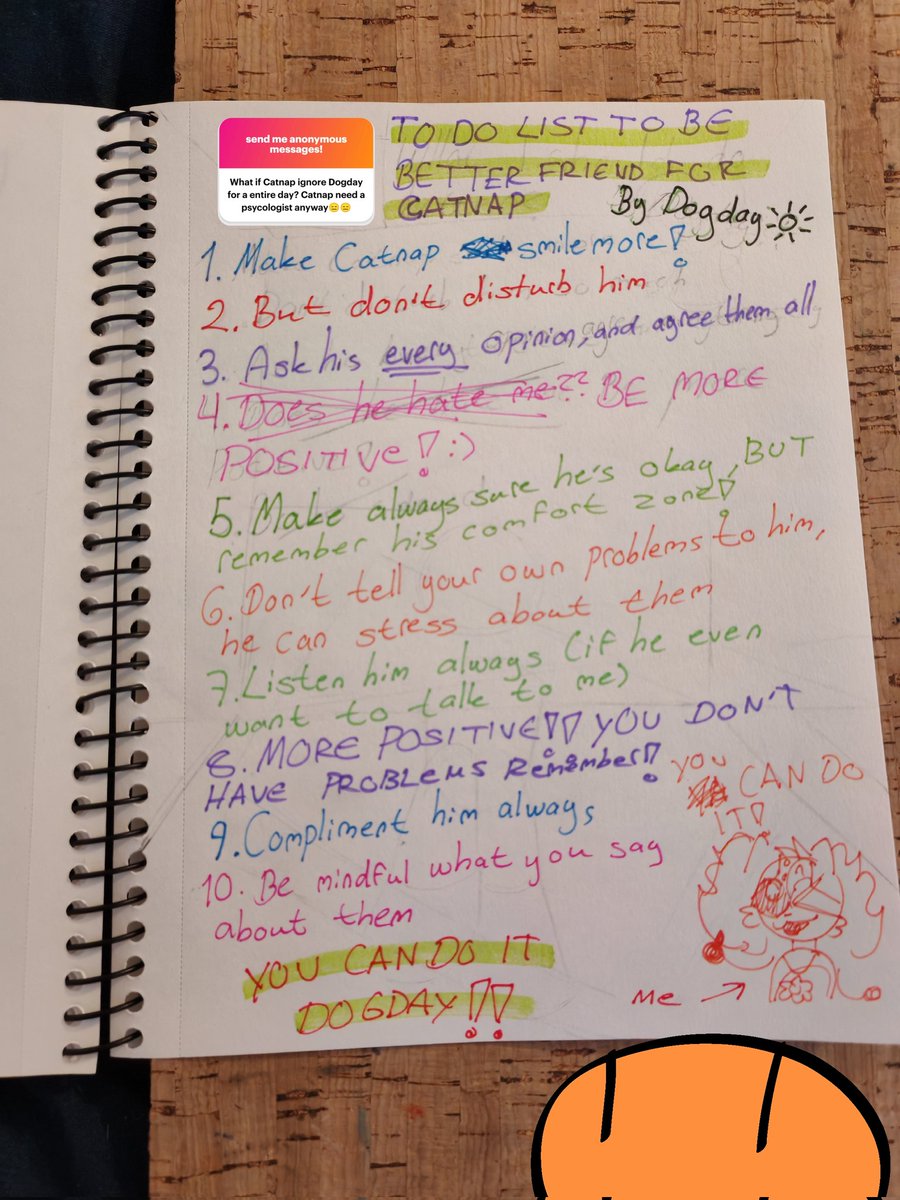 send me anonymous
messages!
What if Catnap ignore Dogday
for a entire day? Catnap need a
psycologist anyway😑😑
TO DO LIST TO BE
BETTER FRIEND FOR
CATNAP
By Dogday
1. Make Catnap smile more!
2. But don't disturb him
3. Ask his every opinion, and agree them all
4. Does he hate me?? BE MORE
POSITIVE! :)
5. Make always sure he's okay, BUT
remember his comfort zone!
6. Don't tell your own problems to him,
he can stress about them
7. Listen him always (if he even
want to talk to me)
8. MORE POSITIVE!! YOU DON'T
HAVE PROBLEMS Remember!
9. Compliment him always
10. Be mindful what you say
about them
YOU CAN DO IT
DOGDAY!!
you
CAN DO
IT!
Me